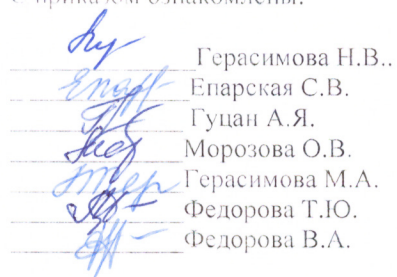 С приказом ознакомлены:
Герасимова Н.В..
Епарская С.В.
Гуцан А.Я.
Морозова О.В.
Герасимова М.А.
Федорова Т.Ю.
Федорова В.А.